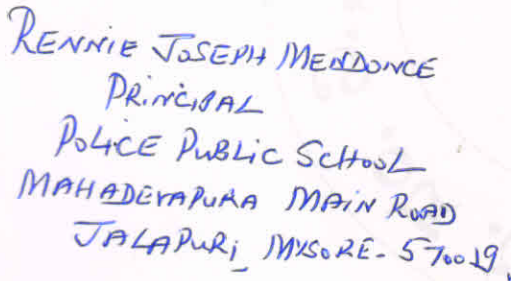 RENNIE JOSEPH MENDONCE
PRINCIPAL
POLICE PUBLIC SCHOOL
MAHADEVAPURA MAIN ROAD
JALAPURI, MYSORE - 570019.